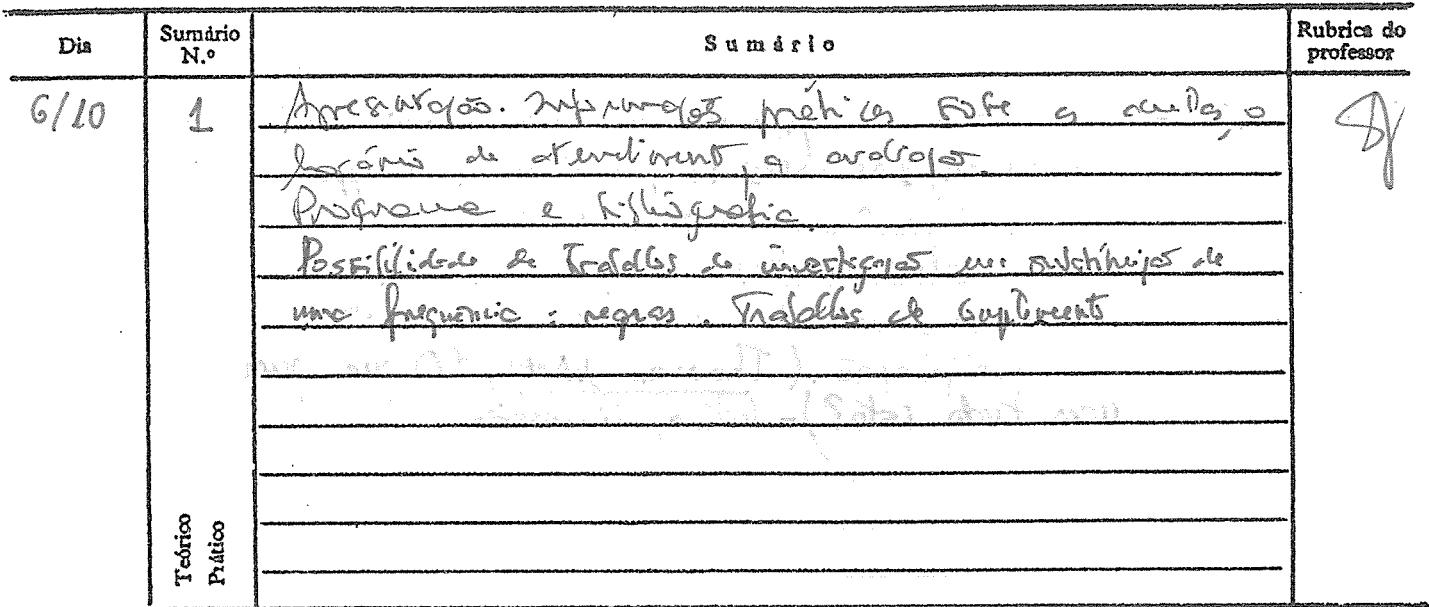 Dia
Sumário N.º
Sumário
Rubrica do professor
6/10
1
Apresentação. Informações práticas sobre as aulas, o
horário de atendimento, a avaliação.
Programa e bibliografia.
Possibilidade de Trabalhos de investigação em substituição de
uma frequência: regras. Trabalhos de complemento
Teórico
Prático